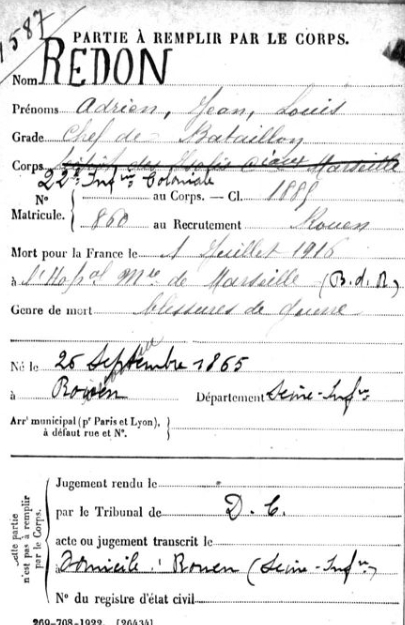 1587
PARTIE À REMPLIR PAR LE CORPS.
Nom REDON
Prénoms Adrien, Jean, Louis
Grade Chef de Bataillon
Corps des Marseille
22e Infrie Coloniale
N° au Corps. — Cl. 1885
Matricule. 860 au Recrutement Rouen
Mort pour la France le 1 Juillet 1916
à l'Hopal Mre de Marseille (B.d.R)
Genre de mort blessures de guerre
Né le 26 Septembre 1865
à Rouen Département Seine-Infre
Arrt municipal (pr Paris et Lyon),
à défaut rue et N°.
Cette partie
n'est pas à remplir
par le Corps.
Jugement rendu le
par le Tribunal de D. C.
acte ou jugement transcrit le
à Domicile : Rouen (Seine-Infre)
N° du registre d'état civil
269-708-1922. [26434]